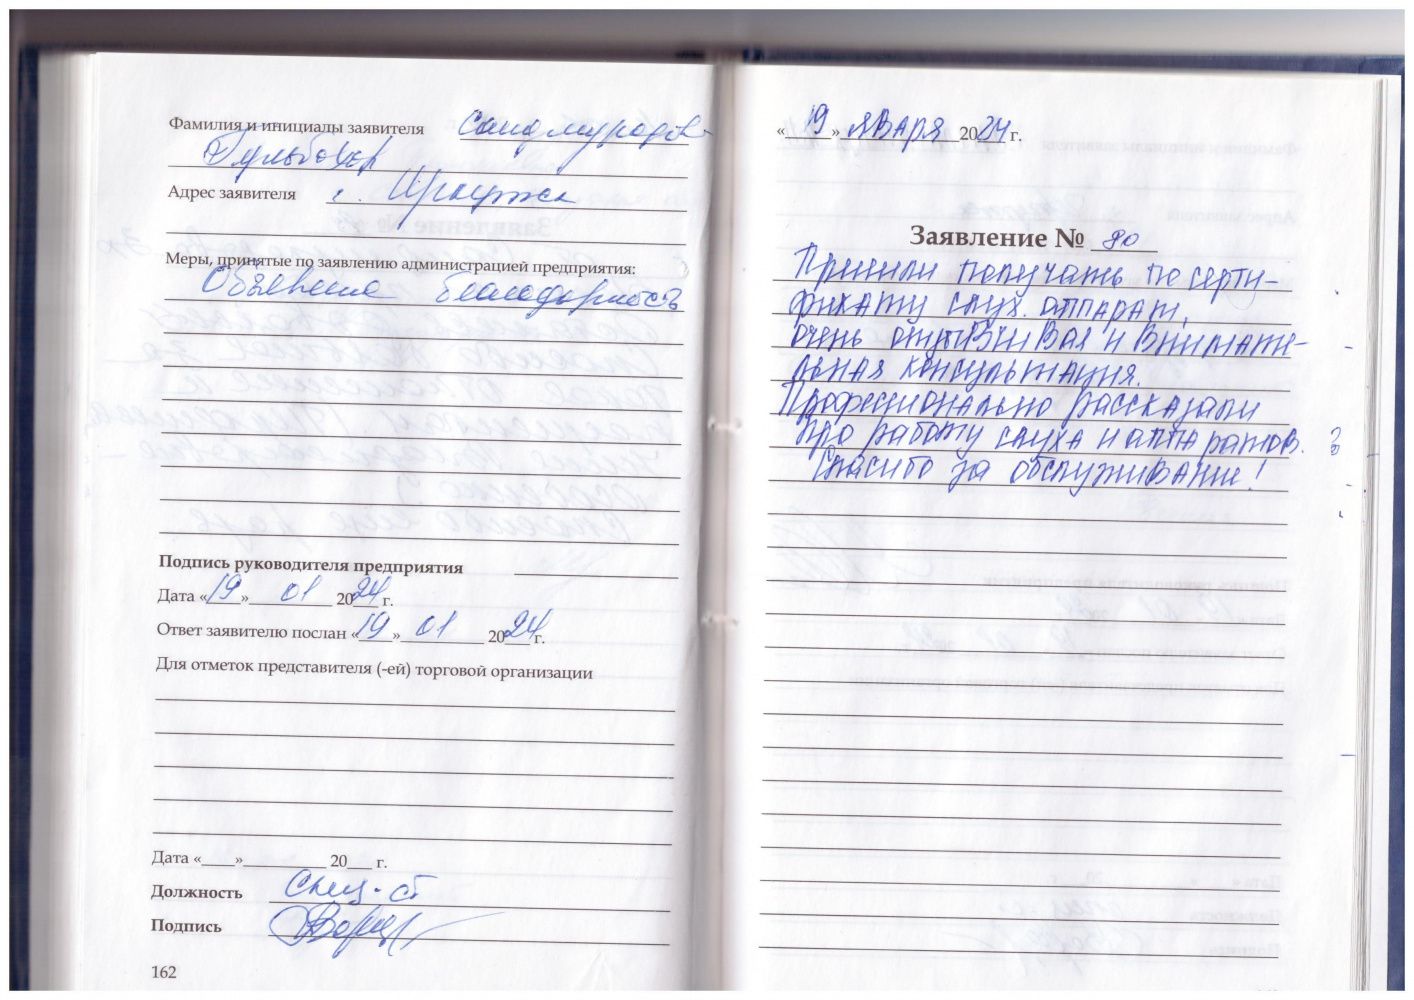 Фамилия и инициалы заявителя Саидмуродов
Адрес заявителя г. Иркутск
Меры, принятые по заявлению администрацией предприятия:
Объявлена благодарность
Подпись руководителя предприятия
Дата «19» 01 2024 г.
Ответ заявителю послан «19» 01 2024 г.
Для отметок представителя (-ей) торговой организации
Дата «____»__________ 20___ г.
Должность Спец-ст
Подпись
162
«19» ЯНВАРЯ 2024 г.
Заявление № 80
Пришли получать по серти-
фикату слух. аппарат,
очень отзывчивая и внимате-
льная консультация.
Профессионально рассказали
про работу слуха и аппаратов.
Спасибо за обслуживание!